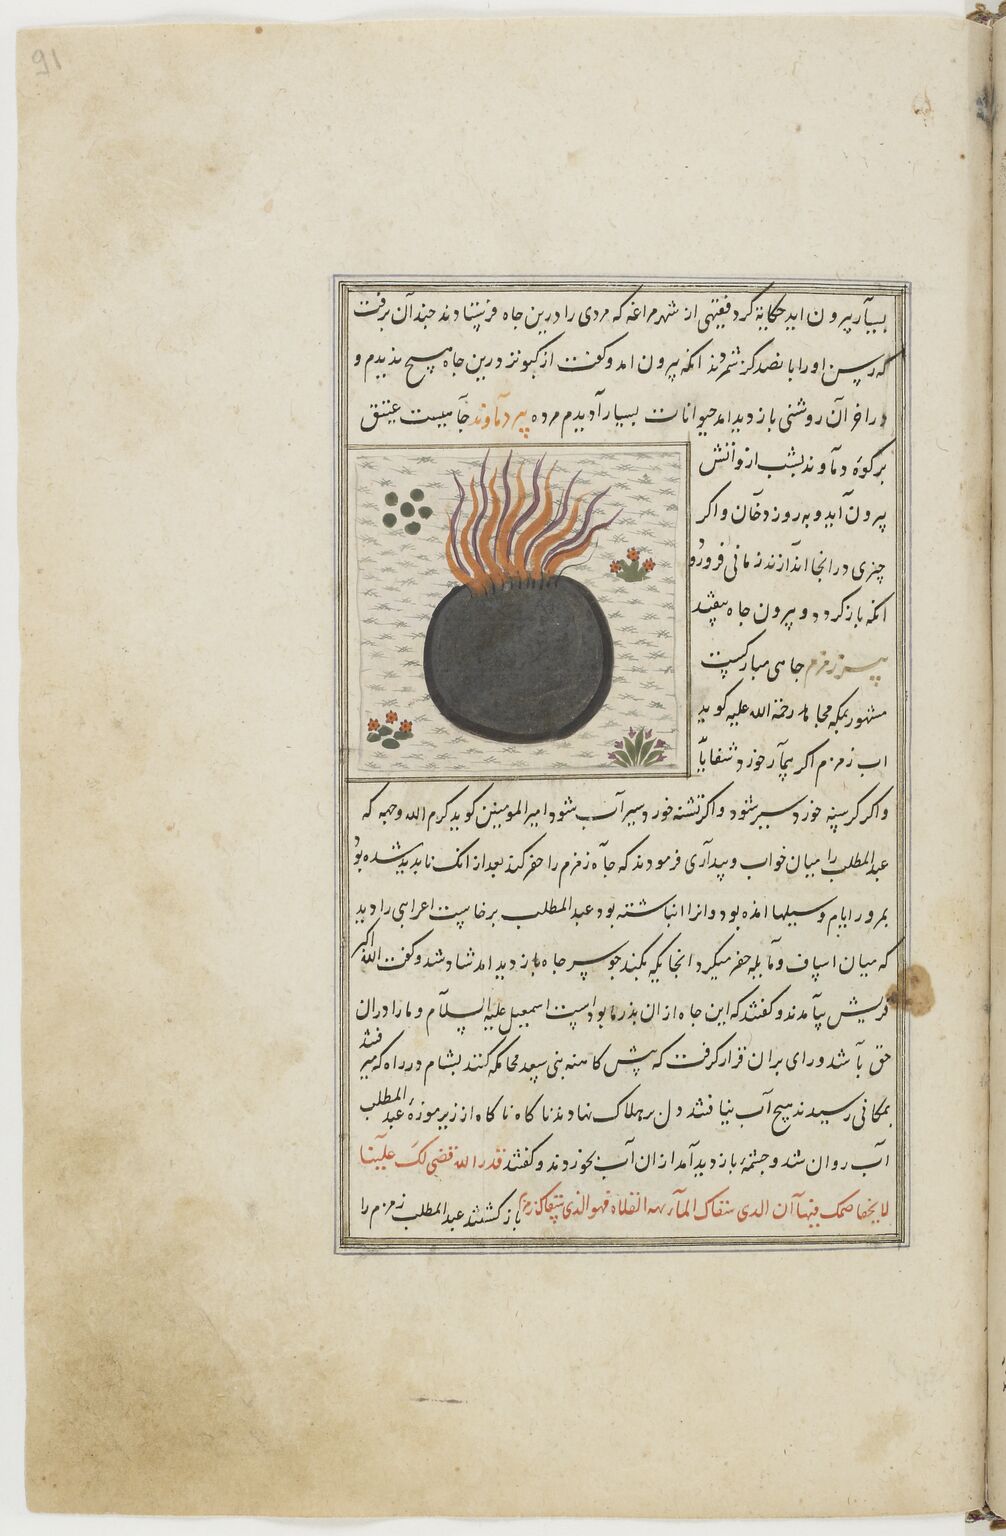 91
بسیار بیرون اید حکایة کرد فقیهی از شهر مراغه که مردی را درین جاه فرستادند جندان برفت
که ریسن اورا بانصد کز شمردند انکه بیرون امد و کفت از کبوتر درین جاه هیچ ندیدم و
در اخر آن روشنی باز دید امد حیوانات بسیار آدیدم مرده بیر دماوند جآهیست عمیق
بر کوه دماوند بشب ازو آتش
بیرون آید و به روز دخان و اکر
چیزی در انجا اندازند زمانی فرو رود
انکه باز کردد و بیرون جاه بیفتد
بیر زمزم جاهی مبارکست
مشهور بمکه مجاهد رحمة الله علیه کوید
اب زمزم اکر بیمار خورد شفا یابد
و اکر کرسنه خورد سیر شود و اکر تشنه خورد سیرآب شود امیرالمومنین کوید کرم الله وجهه که
عبدالمطلب را میان خواب و بیدآری فرمودند که جآه زمزم را حفر کند بعد از انک نابدید شده بود
بمرور ایام و سیلها امده بود و انرا انباشته بود عبدالمطلب برخاست اعرابی را دید
که میان اساف و نآیله حفر میکرد انجا یکه بکند جو سر جاه باز دید امد شاد شد و کفت الله اکبر
قریش بیآمدند و کفتند که این جاه از ان بدر ما بود است اسمعیل علیه السلآم و ما را در ان
حق بآشد و رای بران قرار کرفت که پیش کاهنه بنی سعد محاکمه کنند بشام در راه که میرفتند
بمکانی رسیدند هیچ آب نیافتند دل بر هلاک نهادند ناکاه ناکاه از زیر موزهٔ عبدالمطلب
آب روان شد و چشمهٔ باز دید آمد از ان آب بخوردند و کفتند قدر الله قضی لک علینا
لا یخاصمک فیهآ ان الدی سقاک المآ بهده الفلاة فهو الذی سقاک زمزم باز کشتند عبدالمطلب زمزم را